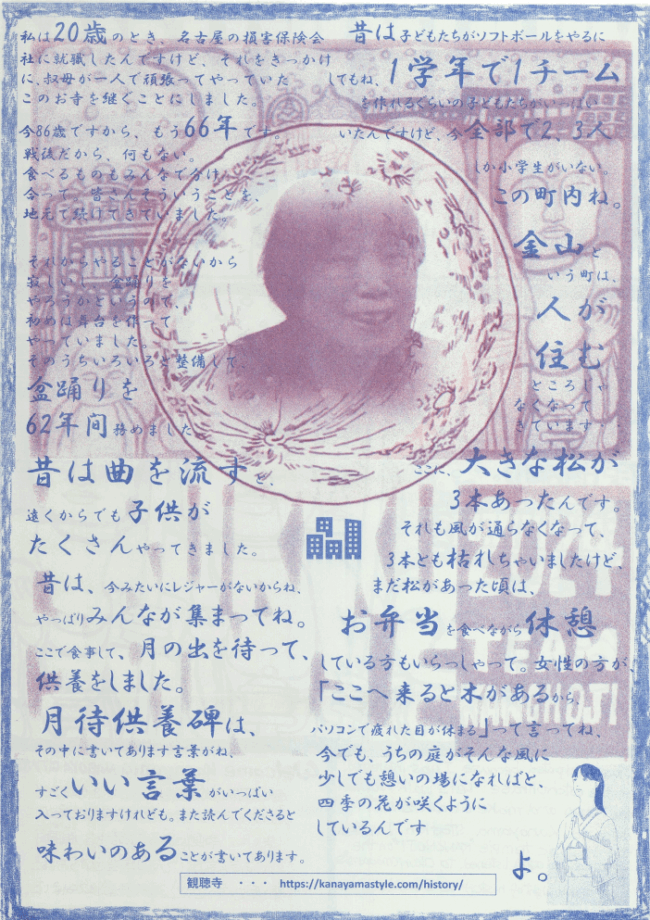 私は20歳のとき、名古屋の損害保険会
社に就職したんですけど、それをきっかけ
に、叔母が一人で頑張ってやっていた
このお寺を継ぐことにしました。
今86歳ですから、もう66年です。
戦後だから、何もない。
食べるものもみんなで分け
合って、皆さんそういうことを、
地元で続けてきていました。
それからやることがないから
寂しいし、盆踊りを
やろうかというので、
初めは舞台を作って
やっていました。
そのうちいろいろと整備して、
盆踊りを
62年間務めました
昔は曲を流すと、
遠くからでも子供が
たくさんやってきました。
昔は、今みたいにレジャーがないからね、
やっぱりみんなが集まってね。
ここで食事して、月の出を待って、
供養をしました。
月待供養碑は、
その中に書いてあります言葉がね、
すごくいい言葉がいっぱい
入っておりますけれども。また読んでくださると
味わいのあることが書いてあります。
昔は子どもたちがソフトボールをやるに
してもね、1学年で1チーム
を作れるぐらいの子どもたちがいっぱい
いたんですけど、今全部で2、3人
しか小学生がいない。
この町内ね。
金山と
いう町は、
人が
住む
ところじゃ
なくなって
きています…
ここに、大きな松が
3本あったんです。
それも風が通らなくなって、
3本とも枯れちゃいましたけど、
まだ松があった頃は、
お弁当を食べながら休憩
している方もいらっしゃって。女性の方が、
「ここへ来ると木があるから、
パソコンで疲れた目が休まる」って言ってね、
今でも、うちの庭がそんな風に
少しでも憩いの場になればと、
四季の花が咲くように
しているんです
よ。
観聴寺 ・・・ https://kanayamastyle.com/history/